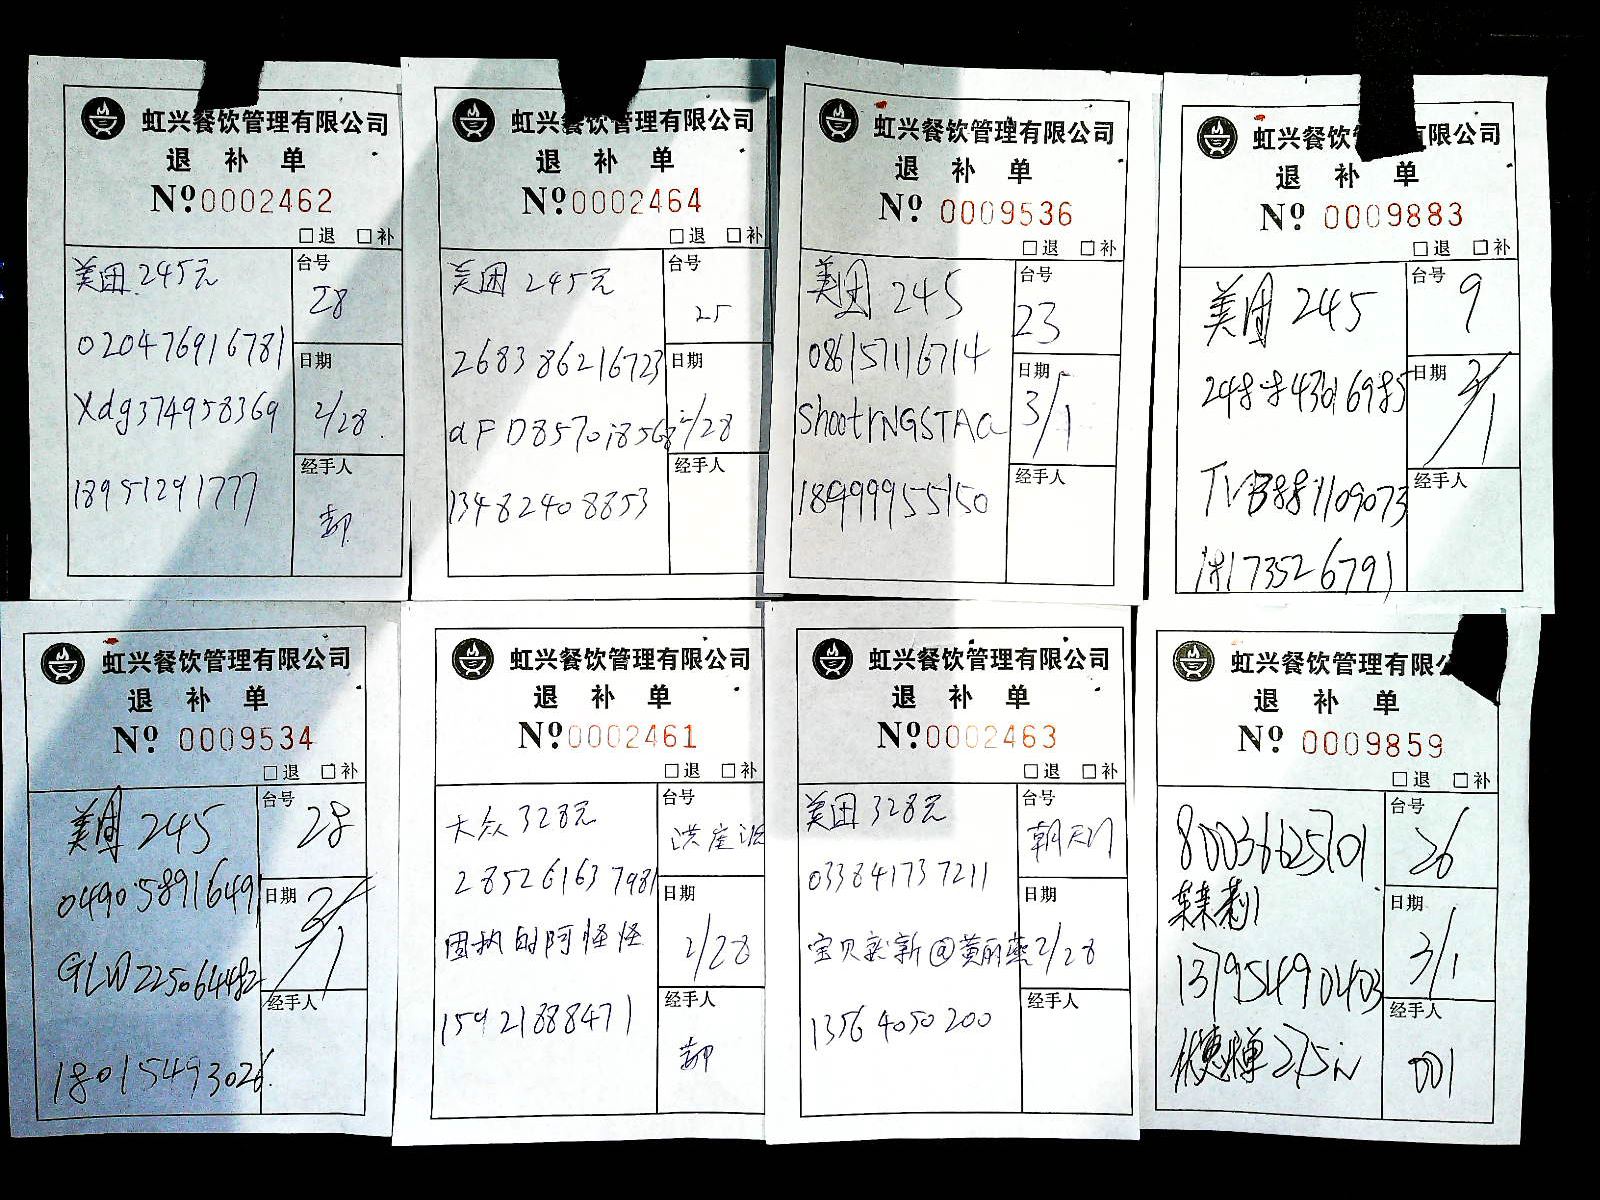 虹兴餐饮管理有限公司
退补单
Nº0002462
□退 □补
美团 245元
台号
28
020476916781
日期
Xdg374958369
2/28
经手人
18951291777
虹兴餐饮管理有限公司
退补单
Nº0002464
□退 □补
美团 245元
台号
25
268386216723
日期
2/28
经手人
13482408853
虹兴餐饮管理有限公司
退补单
Nº 0009536
□退 □补
美团 245
台号
23
086157116714
日期
3/1
ShootrNGSTAC
经手人
18499955150
虹兴餐饮管理有限公司
退补单
Nº 0009883
□退 □补
美团 245
台号
9
日期
3/1
TVB881109073
经手人
虹兴餐饮管理有限公司
退补单
Nº 0009534
□退 □补
美团 245
台号
28
049058916491
日期
3/1
GLW225064482
经手人
18015493026
虹兴餐饮管理有限公司
退补单
Nº0002461
□退 □补
大众 328元
台号
285261637981
日期
固执的阿怪怪
2/28
经手人
15921888471
虹兴餐饮管理有限公司
退补单
Nº0002463
□退 □补
美团 328元
台号
朝天门
033841737211
日期
2/28
经手人
13564050200
虹兴餐饮管理有限公
退补单
Nº 0009859
□退 □补
台号
26
80036625701
茉莉
日期
3/1
经手人
001